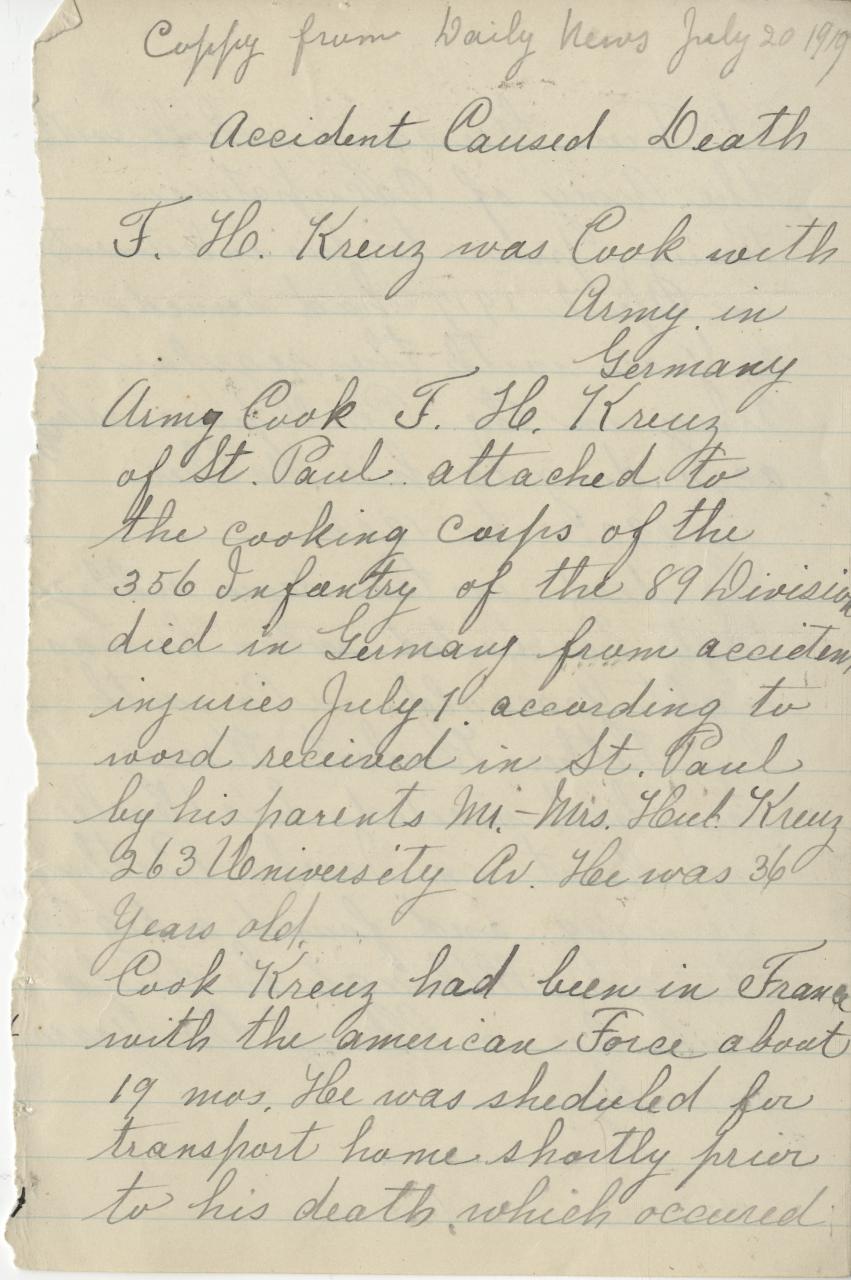 Coppy from Daily News July 20 1919
Accident Caused Death
F. H. Kreuz was Cook with
Army in
Germany
Army Cook F. H. Kreuz
of St. Paul attached to
the cooking corps of the
356 Infantry of the 89 Division
died in Germany from acciden
injuries July 1. according to
word received in St. Paul
by his parents Mr.-Mrs. Hub. Kreuz
263 University Av. He was 36
Years old.
Cook Kreuz had been in France
with the american Force about
19 mos. He was sheduled for
transport home shortly prior
to his death which occured